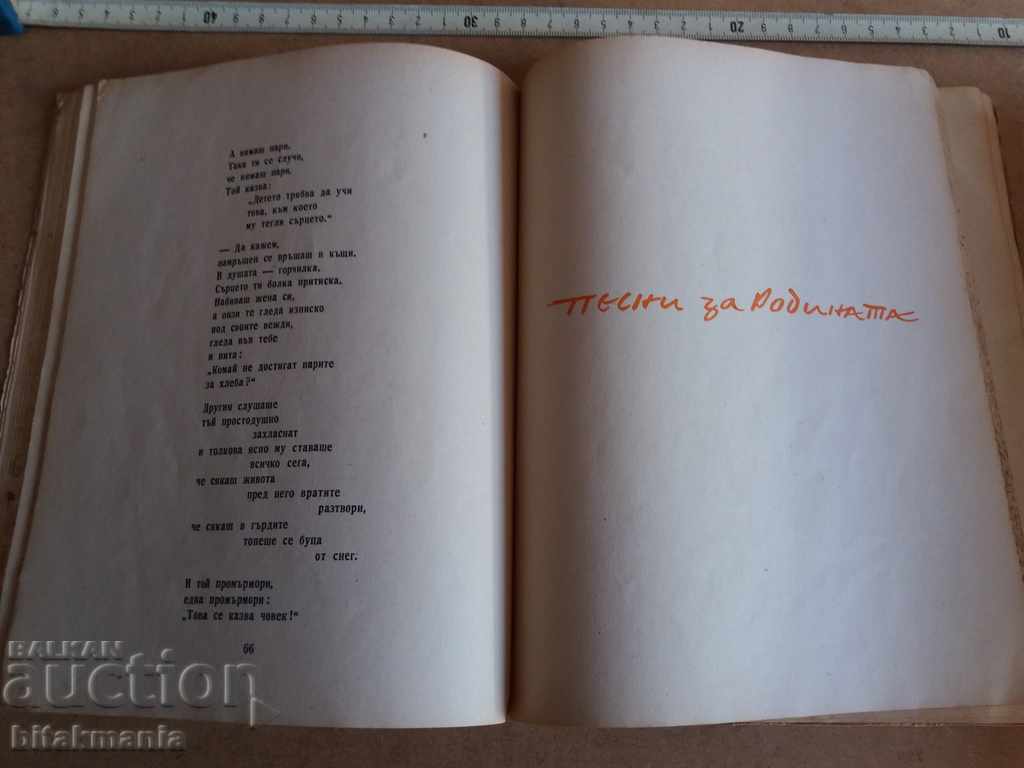 А нямаш пари,
Така ти се случи,
че нямаш пари.
Той казва:
„Детето трябва да учи
това, към което
му тегли сърцето."
— Да кажем,
намръщен се връщаш в къщи.
В душата — горчилка,
Сърцето ти болка притиска,
Набиваш жена си,
а онзи те гледа изниско
под своите вежди,
гледа във тебе
и пита:
„Комай не достигат парите
за хляба?"
Другия слушаше
тъй простодушно
захласнат
и толкова ясно му ставаше
всичко сега,
че сякаш живота
пред него вратите
разтвори,
че сякаш в гърдите
топеше се буца
от снег.
И той промърмори,
едва промърмори:
„Това се казва човек!"
66
ПЕСНИ за Родината
40
30
20
10
BALKAN
auction
bitakmania